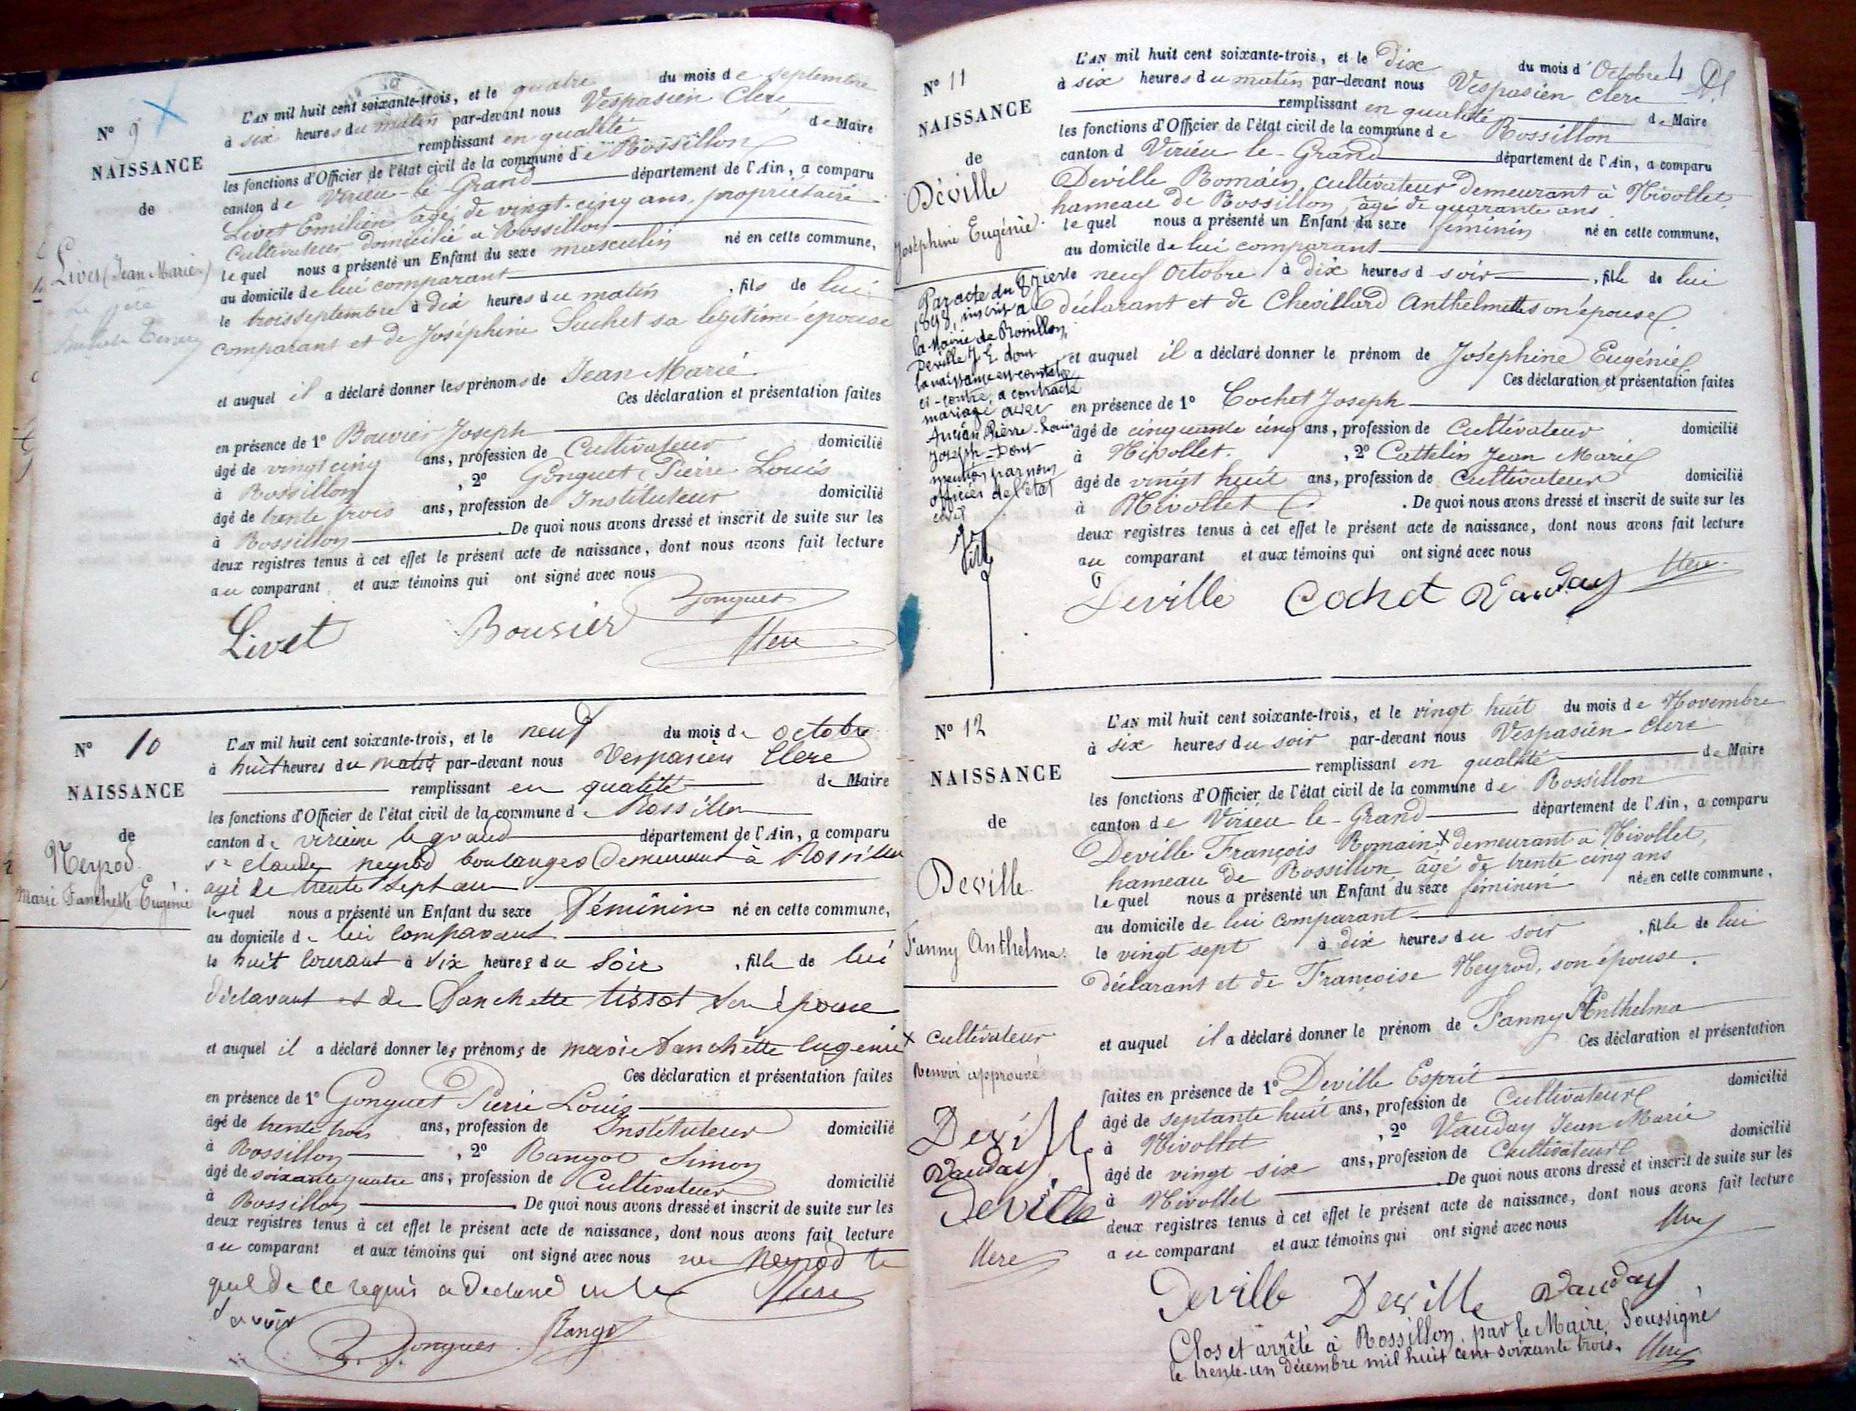 N° 9
NAISSANCE
de
Livet (Jean Marie)
L'AN mil huit cent soixante-trois, et le quatre du mois de septembre
à six heures du matin par-devant nous Vespasien Clerc
remplissant en qualité de Maire
les fonctions d'Officier de l'état civil de la commune de Rossillon
canton de Virieu-le-Grand département de l'Ain, a comparu
Livet Emilien âgé de vingt-cinq ans, propriétaire
cultivateur domicilié à Rossillon
lequel nous a présenté un Enfant du sexe masculin né en cette commune,
au domicile de lui comparant
le trois septembre à dix heures du matin, fils de lui
comparant et de Joséphine Suchet sa légitime épouse
et auquel il a déclaré donner les prénoms de Jean Marie.
Ces déclaration et présentation faites
en présence de 1° Bouvier Joseph
âgé de vingt cinq ans, profession de Cultivateur domicilié
à Rossillon, 2° Gonguet Pierre Louis
âgé de trente trois ans, profession de Instituteur domicilié
à Rossillon. De quoi nous avons dressé et inscrit de suite sur les
deux registres tenus à cet effet le présent acte de naissance, dont nous avons fait lecture
au comparant et aux témoins qui ont signé avec nous
Gonguet
Livet Bouvier Clerc
N° 10
NAISSANCE
de
Neyrod
Marie Fanchette Eugénie
L'AN mil huit cent soixante-trois, et le neuf du mois de octobre
à huit heures du matin par-devant nous Vespasien Clerc
remplissant en qualité de Maire
les fonctions d'Officier de l'état civil de la commune de Rossillon
canton de virieu le grand département de l'Ain, a comparu
sr claude neyrod boulanger demeurant à Rossillon
agé de trente sept ans
lequel nous a présenté un Enfant du sexe féminin né en cette commune,
au domicile de lui comparant
le huit courant à six heures du soir, fille de lui
déclarant et de fanchette tissot son épouse
et auquel il a déclaré donner les prénoms de marie fanchette eugenie
Ces déclaration et présentation faites
en présence de 1° Gonguet Pierre Louis
âgé de trente trois ans, profession de Instituteur domicilié
à Rossillon, 2° Rangot Simon
âgé de soixante quatre ans, profession de Cultivateur domicilié
à Rossillon. De quoi nous avons dressé et inscrit de suite sur les
deux registres tenus à cet effet le présent acte de naissance, dont nous avons fait lecture
au comparant et aux témoins qui ont signé avec nous Neyrod le
quel de ce requis a déclaré ne le Clerc
savoir
Gonguet Rangot
4
N° 11
NAISSANCE
de
Déville
Joséphine Eugénie.
Par acte du
1898, inscrit à
la Mairie de Rossillon,
Deville J. E. dont
la naissance est constatée
ci-contre, a contracté
mariage avec
Pierre Louis
Joseph. Dont
mention par nous
officier de l'état
civil
L'AN mil huit cent soixante-trois, et le dix du mois d'Octobre
à six heures du matin par-devant nous Vespasien Clerc
remplissant en qualité de Maire
les fonctions d'Officier de l'état civil de la commune de Rossillon
canton d Virieu-le-Grand département de l'Ain, a comparu
Deville Romain, cultivateur demeurant à Nivollet,
hameau de Rossillon, âgé de quarante ans
lequel nous a présenté un Enfant du sexe féminin né en cette commune,
au domicile de lui comparant
le neuf Octobre à dix heures d soir, fille de lui
déclarant et de Chevillard Anthelmette son épouse.
et auquel il a déclaré donner le prénom de Joséphine Eugénie
Ces déclaration et présentation faites
en présence de 1° Cochet Joseph
âgé de cinquante cinq ans, profession de Cultivateur domicilié
à Nivollet., 2° Cattelin Jean Marie
âgé de vingt huit ans, profession de Cultivateur domicilié
à Nivollet. De quoi nous avons dressé et inscrit de suite sur les
deux registres tenus à cet effet le présent acte de naissance, dont nous avons fait lecture
au comparant et aux témoins qui ont signé avec nous
Deville Cochet Vauday Clerc
N° 12
NAISSANCE
de
Deville
Fanny Anthelma.
x Cultivateur
renvoi approuvé
Deville
Vauday
Deville
Clerc
L'AN mil huit cent soixante-trois, et le vingt huit du mois de Novembre
à six heures du soir par-devant nous Vespasien Clerc
remplissant en qualité de Maire
les fonctions d'Officier de l'état civil de la commune de Rossillon
canton de Virieu-le-Grand département de l'Ain, a comparu
Deville François Romain x demeurant à Nivollet,
hameau de Rossillon, âgé de trente cinq ans
lequel nous a présenté un Enfant du sexe féminin né en cette commune,
au domicile de lui comparant
le vingt sept à dix heures du soir, fille de lui
déclarant et de Françoise Neyrod, son épouse.
et auquel il a déclaré donner le prénom de Fanny Anthelma
Ces déclaration et présentation
faites en présence de 1° Deville Esprit
âgé de septante huit ans, profession de Cultivateur domicilié
à Nivollet, 2° Vauday Jean Marie
âgé de vingt six ans, profession de Cultivateur domicilié
à Nivollet. De quoi nous avons dressé et inscrit de suite sur les
deux registres tenus à cet effet le présent acte de naissance, dont nous avons fait lecture
au comparant et aux témoins qui ont signé avec nous Clerc
Deville Deville Vauday
Clos et arrêté à Rossillon, par le Maire, Soussigné
le trente-un décembre mil huit cent soixante trois. Clerc